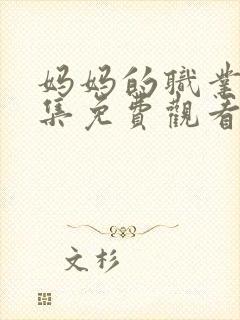 妈妈的職業
集免費觀看
文杉